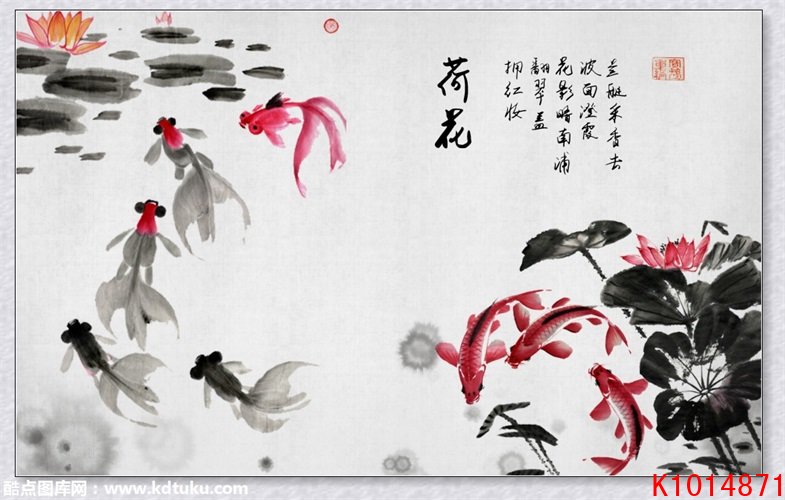 荷花
拥红妆
翻翠盖
花影暗南浦
波面澄霞
兰艇采香去
酷点图库网：www.kdtuku.com
K1014871